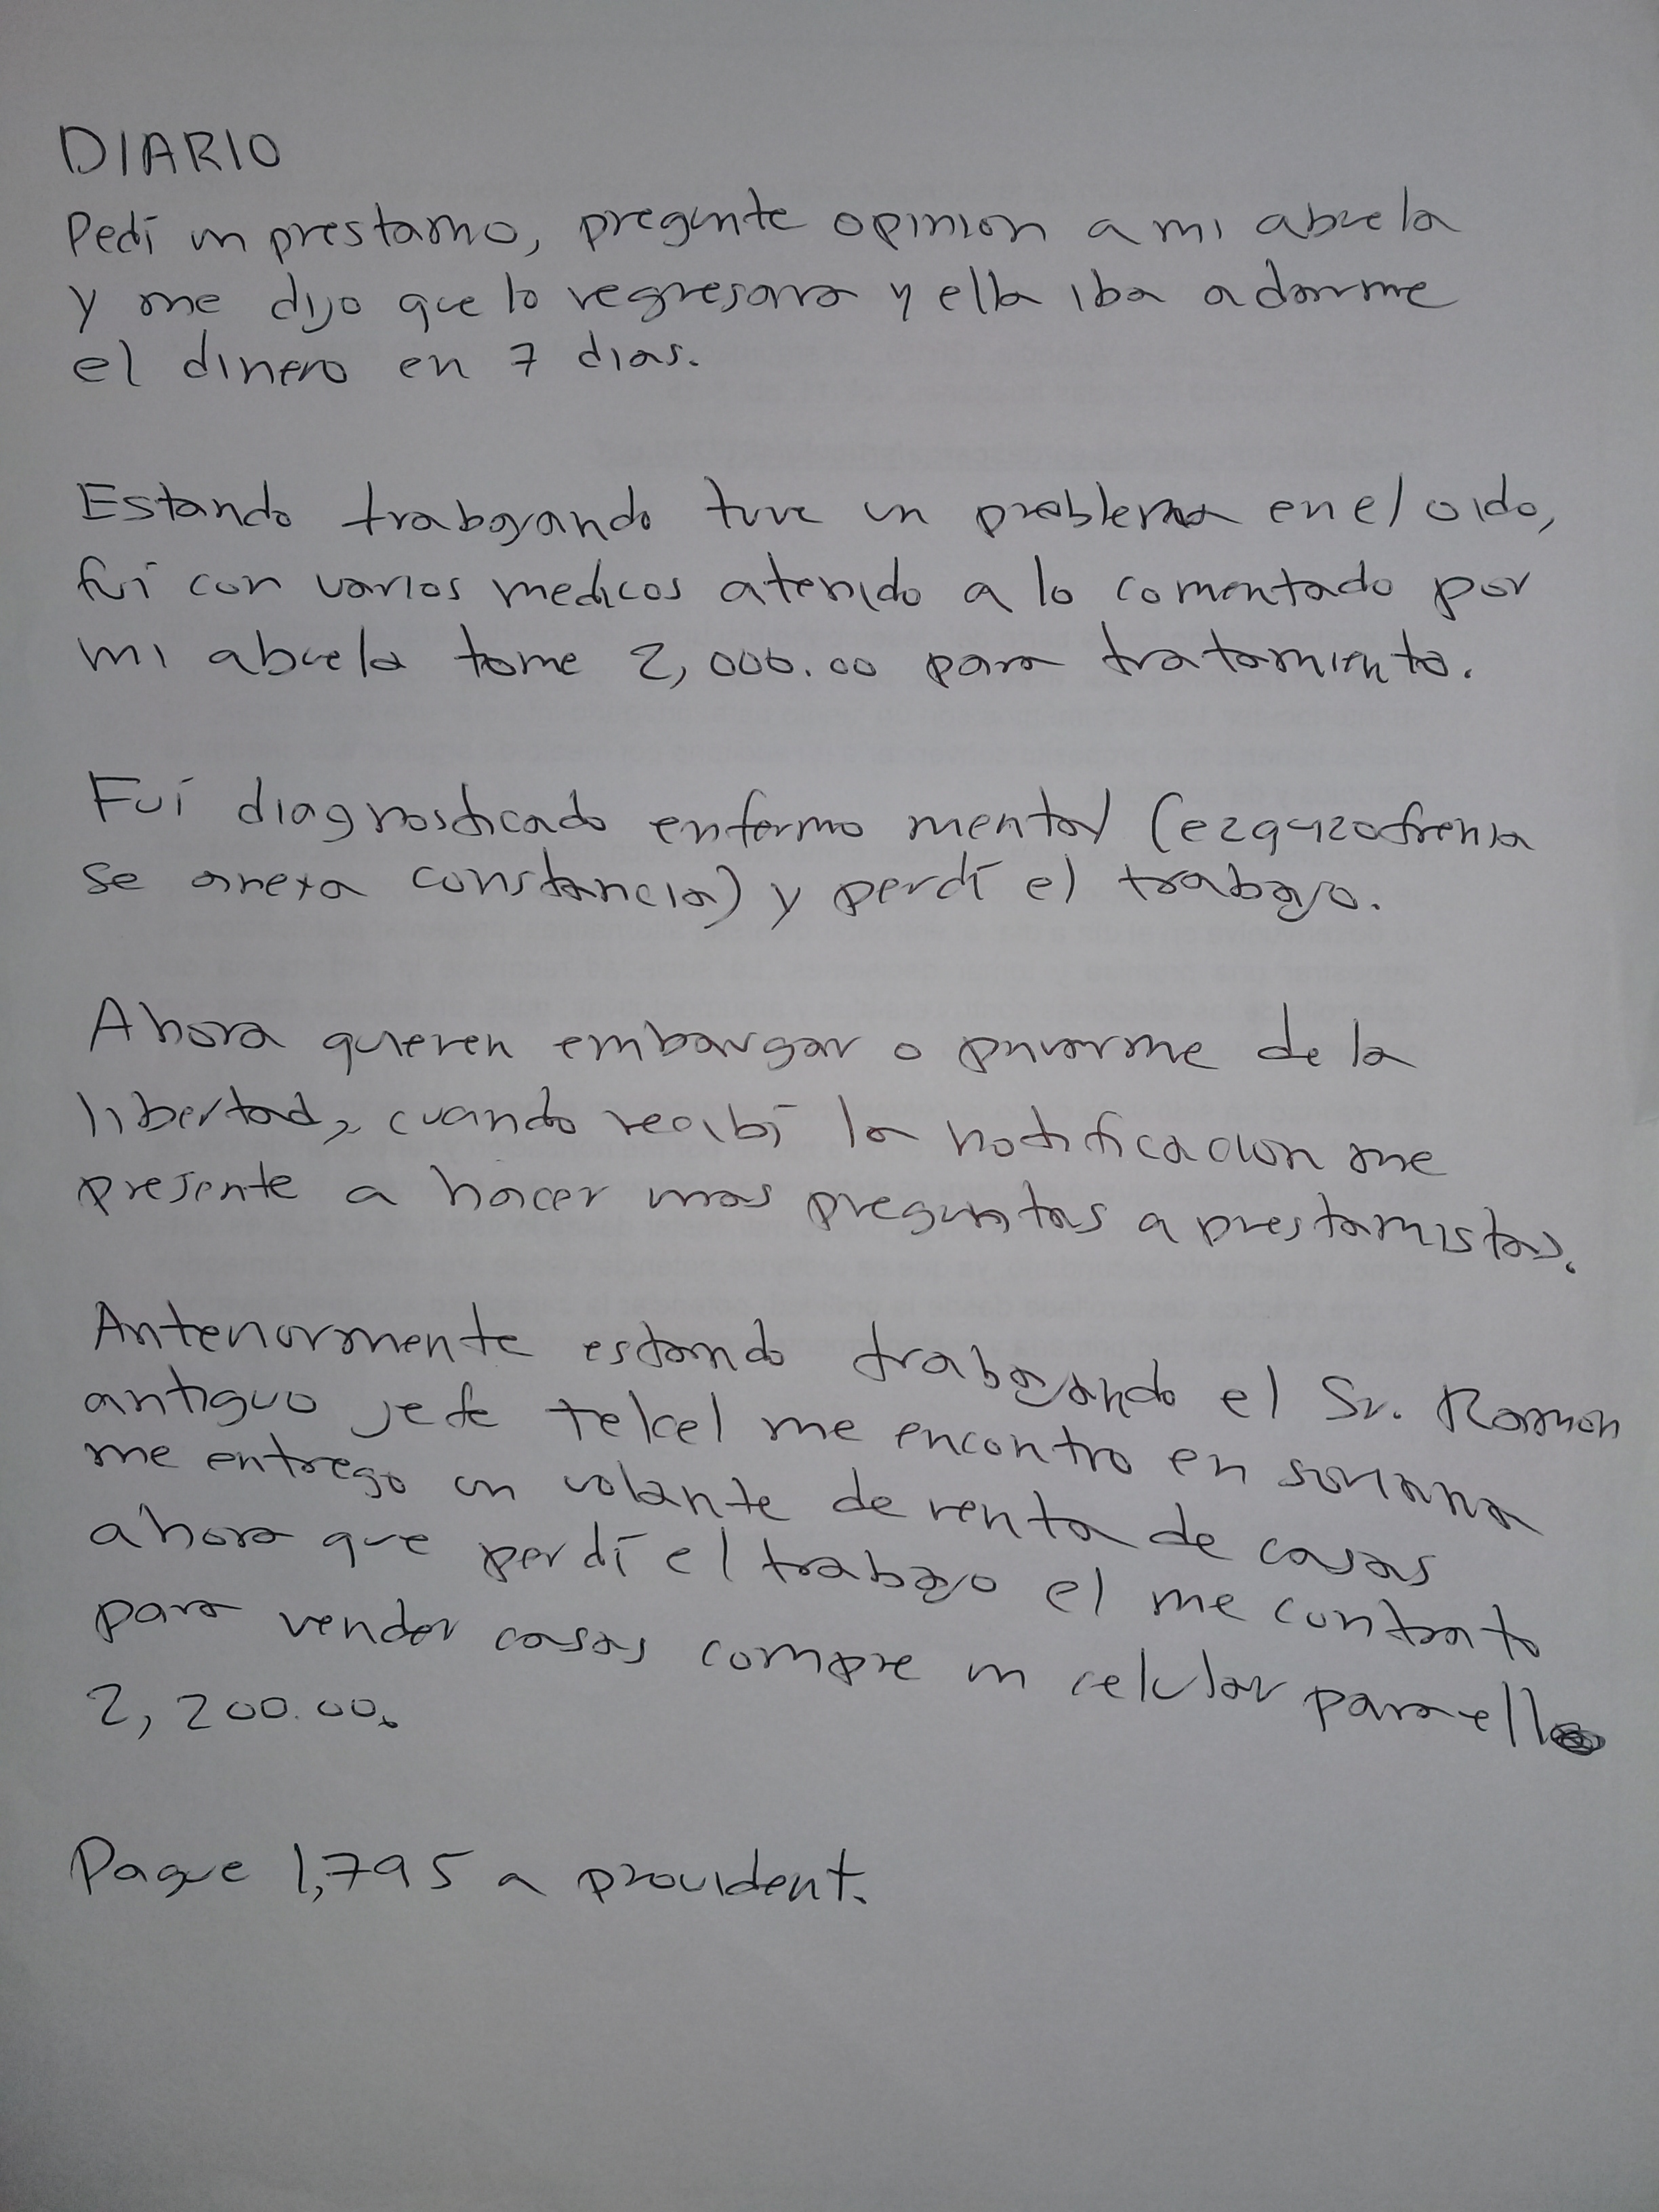 DIARIO
Pedí un prestamo, pregunte opinion a mi abuela
y me dijo que lo regresara y ella iba a darme
el dinero en 7 dias.
Estando trabajando tuve un problema en el oido,
fui con varios medicos atenido a lo comentado por
mi abuela tome 2,000.00 para tratamiento.
Fuí diagnosticado enfermo mental (ezquizofrenia
se anexa constancia) y perdí el trabajo.
Ahora quieren embargar o privarme de la
libertad, cuando recibí la notificacion me
presente a hacer mas preguntas a prestamistas.
Anteriormente estando trabajando el Sr. Ramon
antiguo jefe telcel me encontro en soriana
me entrego un volante de renta de casas
ahora que perdí el trabajo el me contrato
para vender casas compre un celular para ello
2,200.00.
Pague 1,795 a provident.